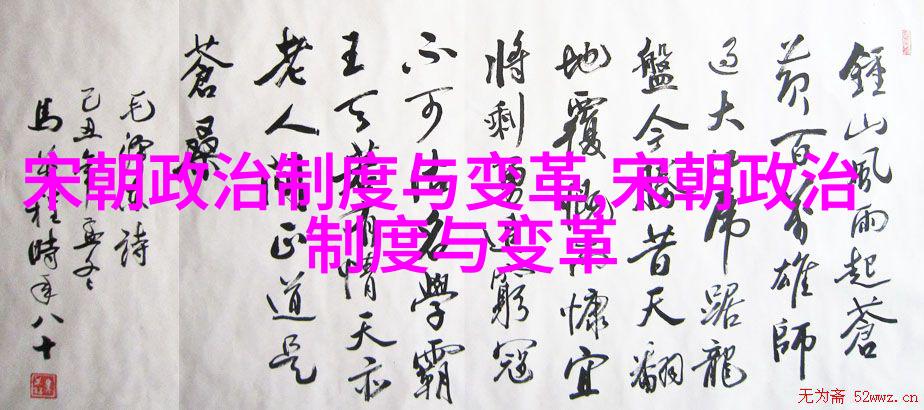 鍾山風雨起蒼
黄百万雄師
过大江虎踞龍
盤今勝昔天翻
地覆慨而慷宜
将剩勇追窮寇
不可沽名學霸
王天若有情天亦
老人間正道是
蒼桑
毛澤东詩
己丑年孟冬
馬程時年八十
宋朝政治制度与变革,宋朝政治
制度与变革
无为斋 52wwz.cn